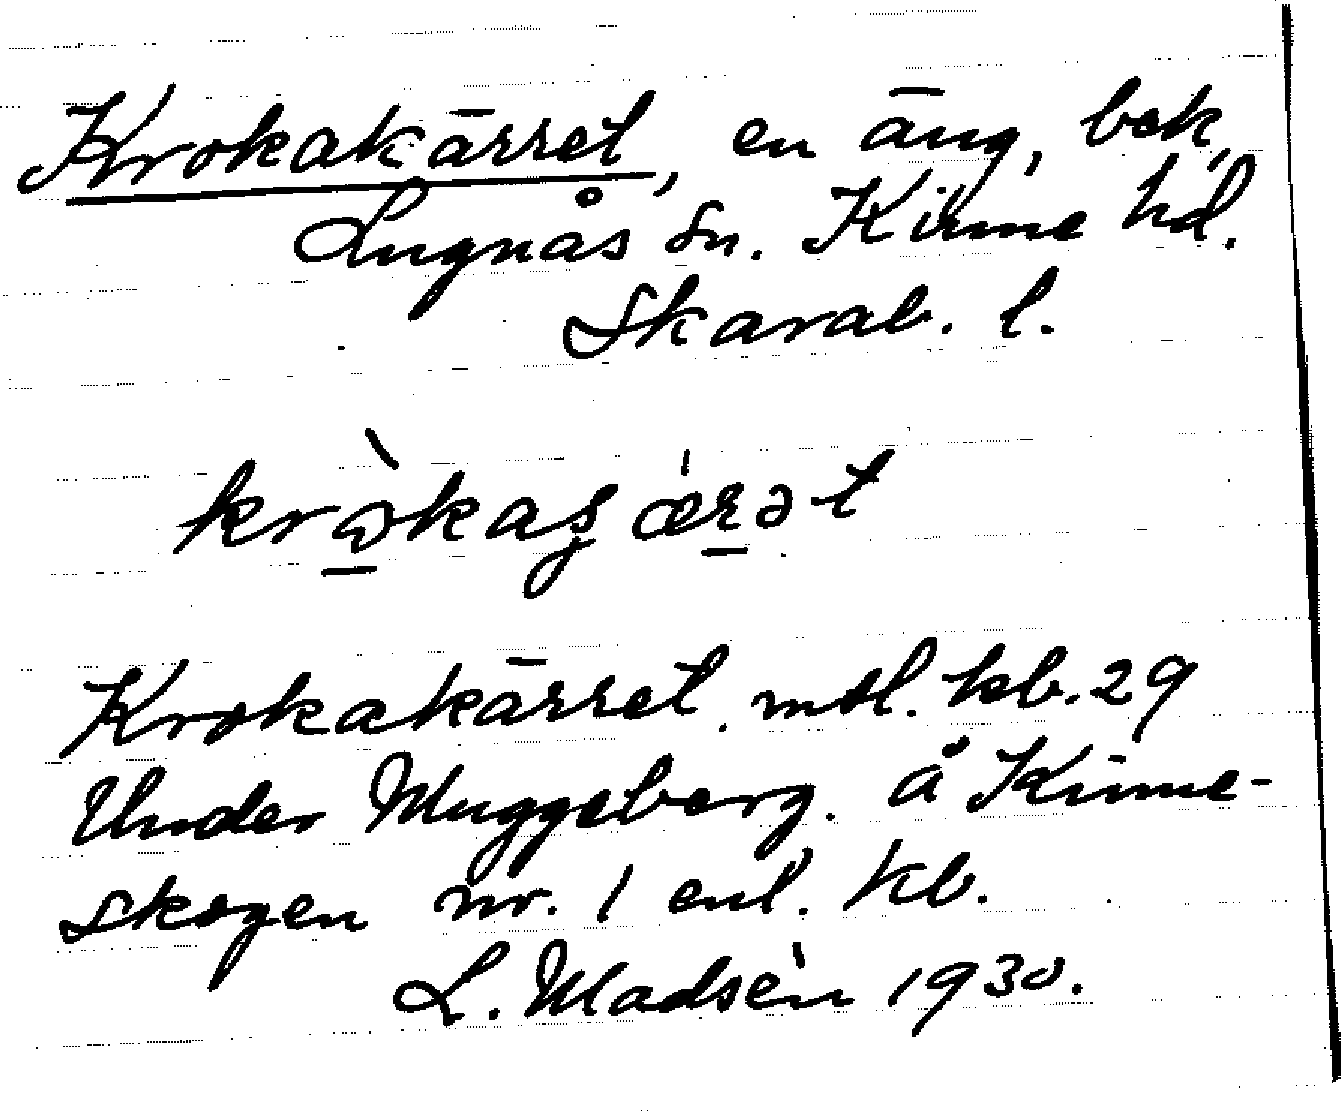 Krokakärret, en äng, bek.
Lugnås sn. Kinne hd.
Skarab. l.
Krokakärret. mtl. kb. 29
Under Muggeberg. å Kinne-
skogen nr. 1 enl. kb.
L. Madsèn 1930.